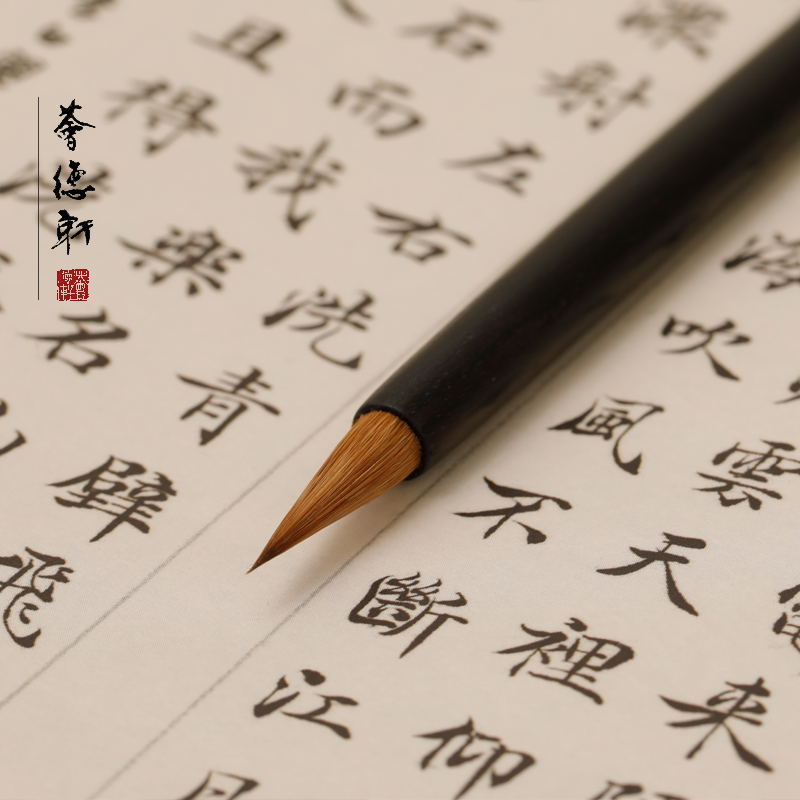 薈德軒
來
雲天裡仰
海吹風不斷江月
射左右洗青壁飛
石而我樂名
且得